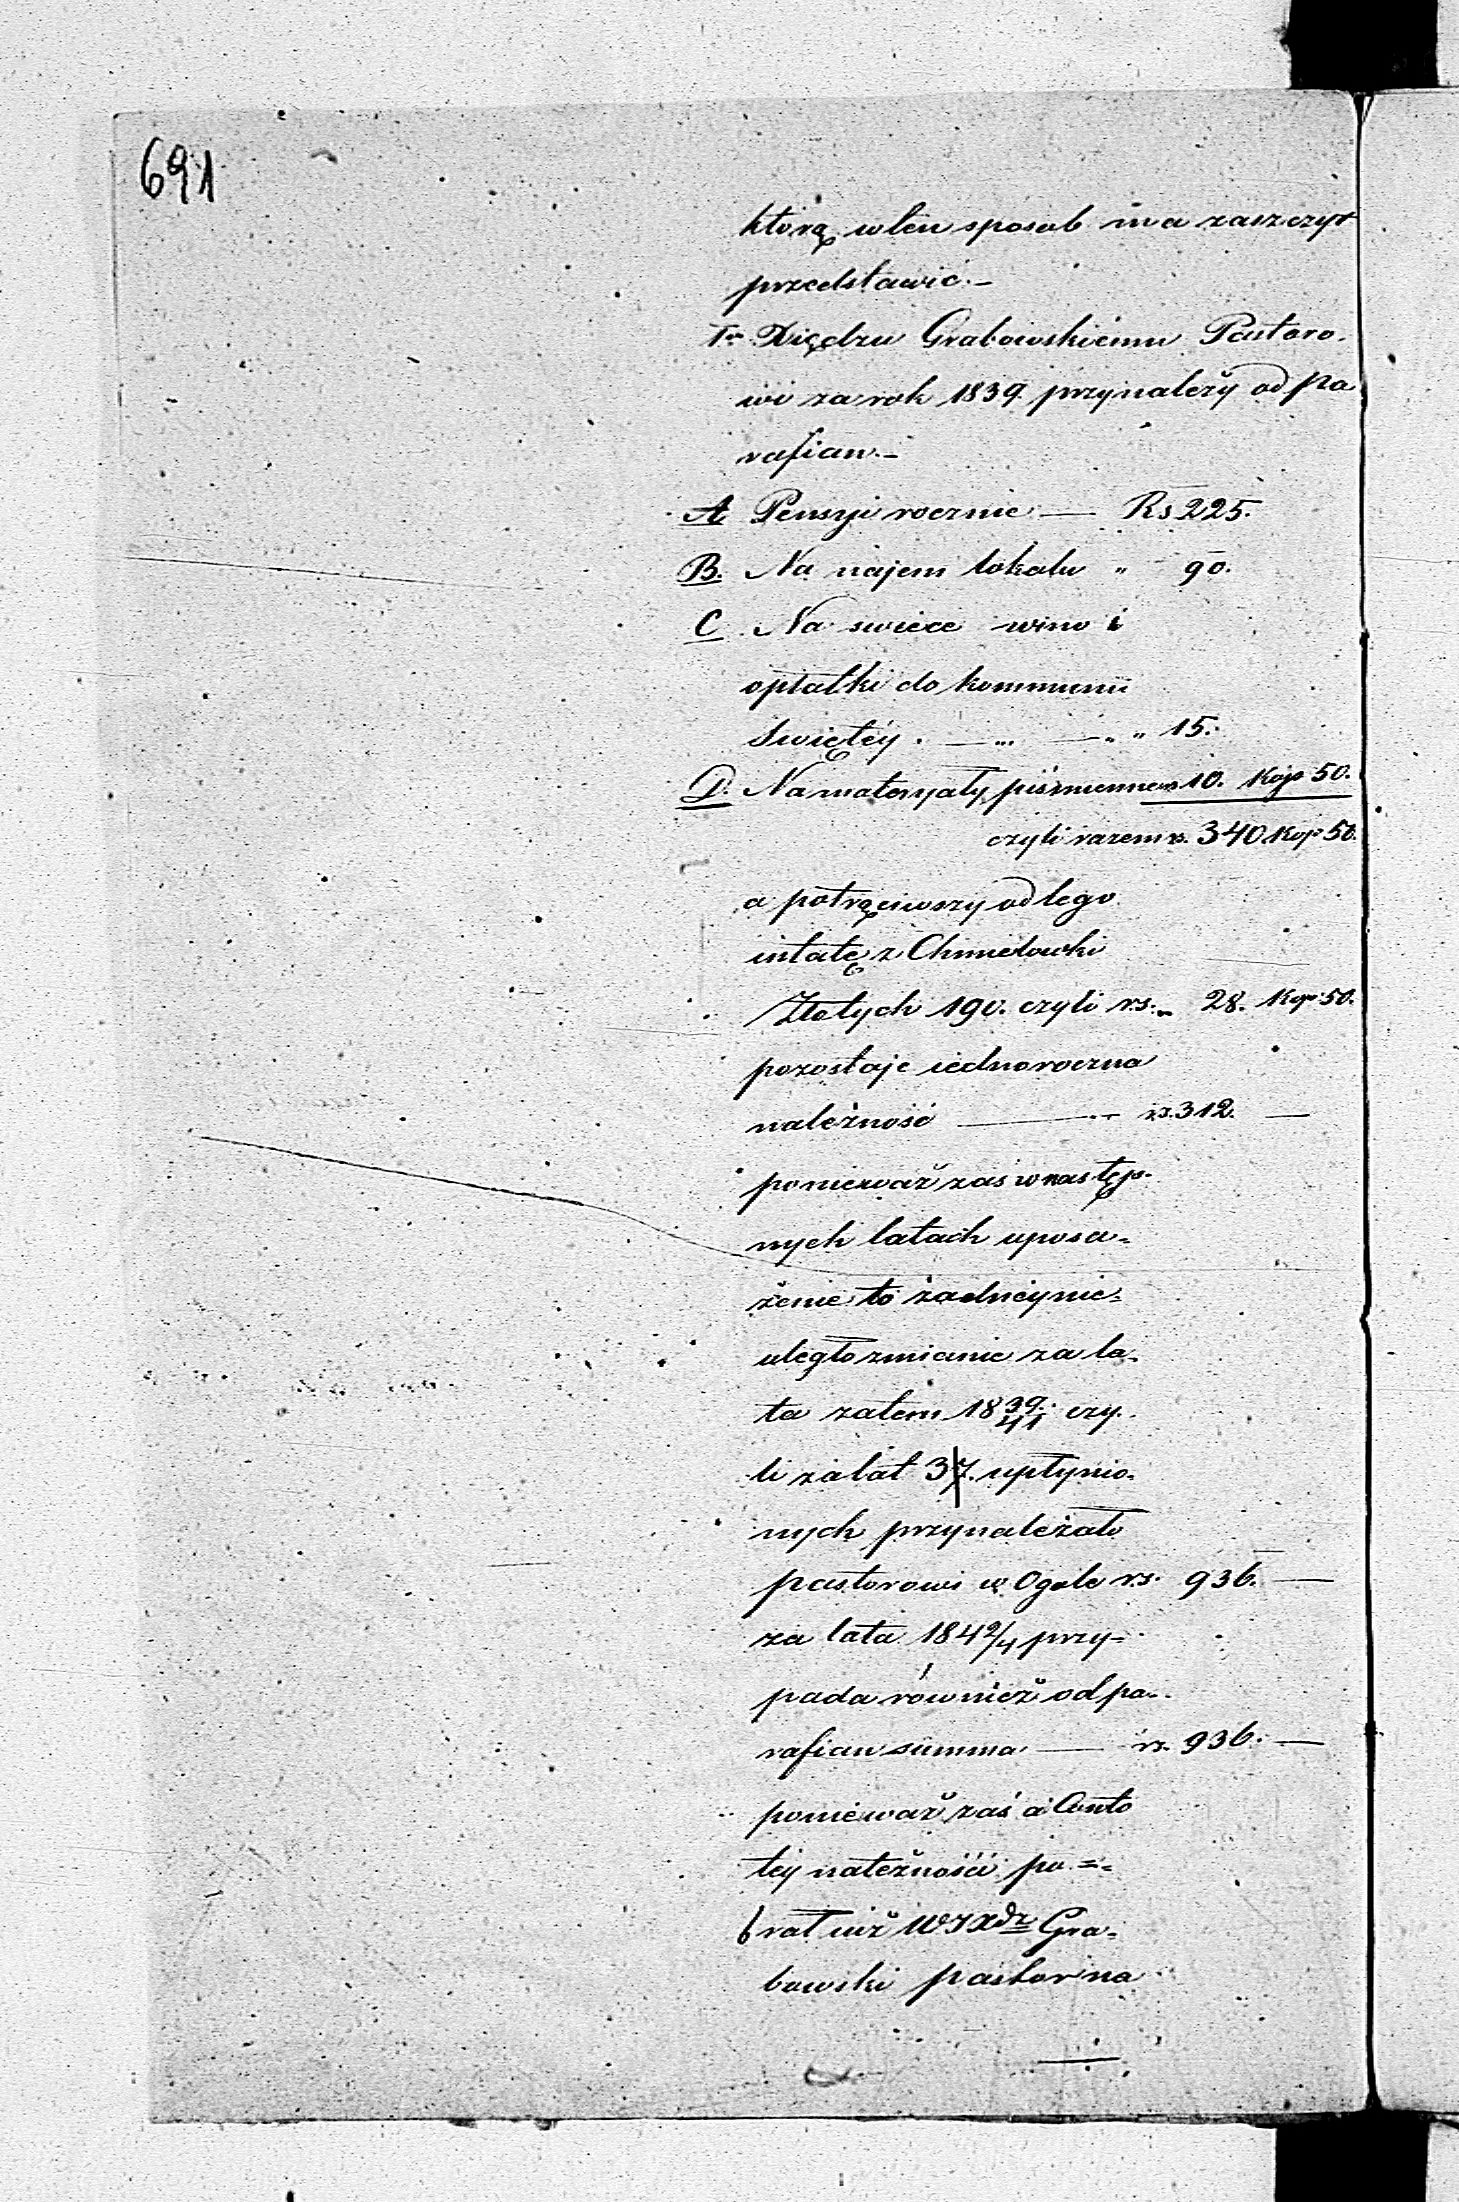 691
którą w ten sposob ma zaszczyt
przedstawić.–
1o Xiędzu Grabowskiemu Pastoro-
wi za rok 1839 przynależy od pa
rafian.–
A. Pensyi rocznie — Rs 225.
B. Na najem lokalu " 90.
C Na swiece wino i
opłatki do kommunii
Swiętéy . — " — " " 15.
D. Na materyały piśmienne rs 10. Kop 50.
czyli razem rs. 340 Kop 50.
a potrąciwszy od tego
intatę z Chmielowki
Złotych 190. czyli rs. " 28. Kop 50.
pozostaje iednoroczna
należność — " rs. 312. —
ponieważ zas w następ-
nych latach uposa-
żenie to żadnéy nie-
uległo zmianie za la-
ta zatem 18 39/41 czy-
li za lat 3. upłynio-
nych przynależało
pastorowi w Ogole rs. 936. —
za lata 184 2/4 przy-
pada również od pa-
rafian summa — rs. 936. —
ponieważ zaś a Conto
téy należności po=
brał iuż WJXdz Gra-
bowski pastor na